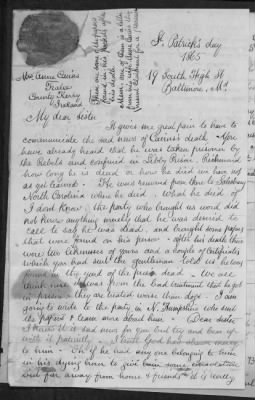 St. Patrick's day
1865
19 South High St
Baltimore, Md
Mrs Anna Cairns
Tralee
County Kerry
Ireland
These are some of the papers
found in his pockets after
his death
one of them is a letter
My dear sister
It gives me great pain to have to
communicate the sad news of Cairns's death. You
have already heard that he was taken prisoner by
the Rebels and confined in Libby Prison, Richmond
how long he is dead or how he died we have not
as yet learned - He was removed from there to Salisbury
North Carolina where he died. What he died of
I don't know, the party who brought us word did
not know anything really but he was desired to
call to say he was dead, and brought some papers
that were found on his person - after his death there
were two likenesses of yours and a couple of
which you had sent the gentleman told us he was
found in the yard of the prison dead - We are
think it was from the bad treatment that he got
in prison - they are treated worse than dogs - I am
going to write to the party in N. Hampshire who sent
the papers & learn more about him - Dear sister
I know it is sad news for you but try and bear up
with it patiently - I trust God has shown mercy
to him - Oh if he had any one belonging to him
in his dying hour to give him some consolation
but far away from home & friends it is really